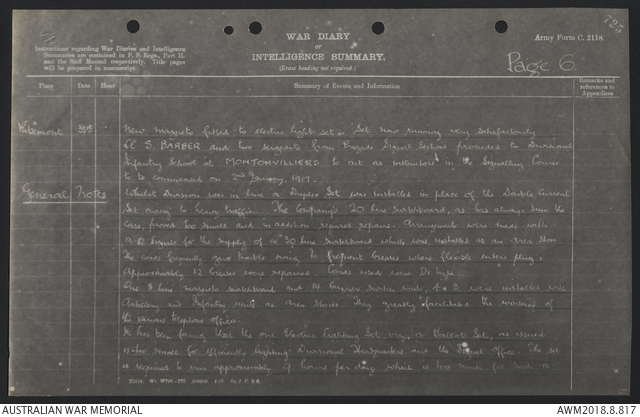 795
WAR DIARY
or
INTELLIGENCE SUMMARY.
(Erase heading not required.)
Instructions regarding War Diaries and Intelligence
Summaries are contained in F. S. Regs., Part II.
and the Staff Manual respectively. Title pages
will be prepared in manuscript.
Army Form C. 2118.
Page 6
Place Date Hour Summary of Events and Information Remarks and references to Appendices
Ribemont 31st New magneto fitted to electric light set. Set now running very satisfactorily
S. BARBER and two sergeants from Brigade Signal Sections proceeded to Divisional
Infantry School at MONTONVILLIERS to act as instructors in the Signalling Course
to be commenced on 2nd January, 1917.
General Notes Whilst Division was in line a Duplex Set was installed in place of the Double Current
Set owing to heavy traffic. The Company's 20 line switchboard, as has always been the
case, proved too small and in addition required repairs. Arrangements were made with
A.D. Signals for the supply of a 30 line switchboard which was installed as an area store.
The cords frequently gave trouble owing to frequent breaks where flexible enters plug.
Approximately 12 breaks were repaired. Cords used were D1 type.
One 8 line magneto switchboard and 14 buzzer units, 4 + 3 were installed with
Artillery and Infantry units as Area Stores. They greatly facilitated the working of
the various telephone offices.
It has been found that the one Electric Lighting Set, as issued
is too small for efficiently lighting Divisional Headquarters and the Signal Office. The set
is required to run approximately 9 hours per day which is too much for such a
AUSTRALIAN WAR MEMORIAL
AWM2018.8.817